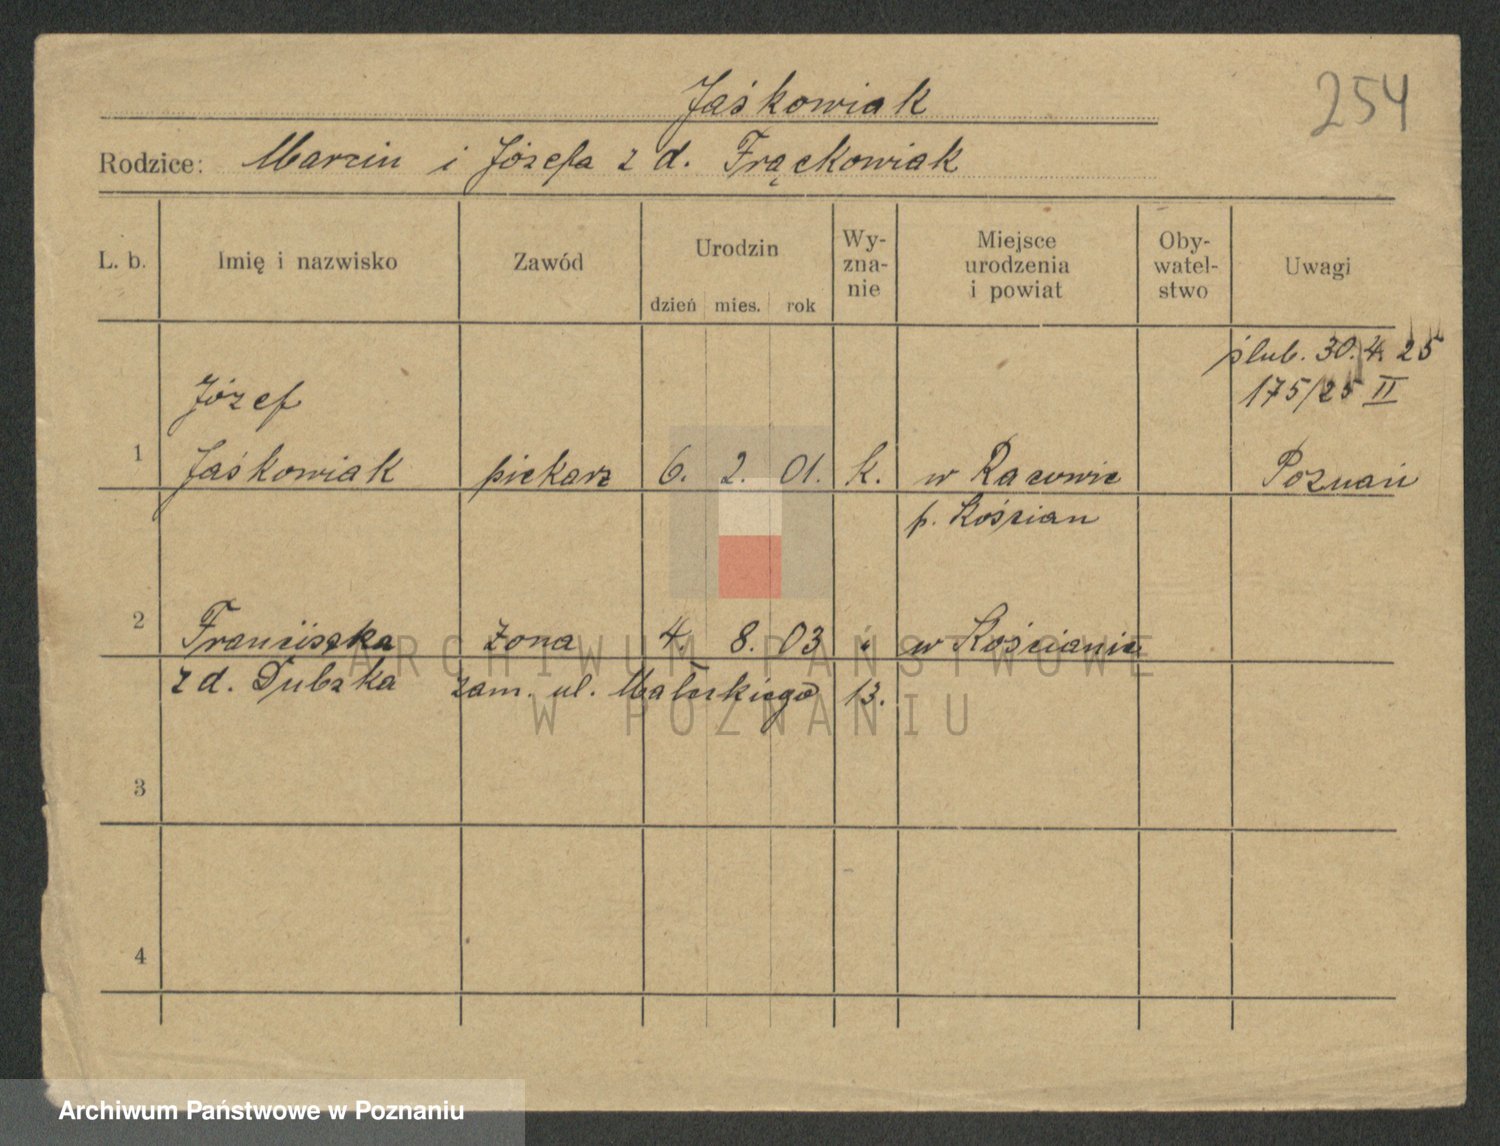 Jaśkowiak
254
Rodzice: Marcin i Józefa z d. Frąckowiak
L. b. Imię i nazwisko Zawód Urodzin dzień mies. rok Wy-zna-nie Miejsce urodzenia i powiat Oby-watel-stwo Uwagi
ślub. 30.4. 25
175/25 II
Józef
1 Jaśkowiak piekarz 6. 2. 01. k. w Poznań
p. Kościan
2 Franciszka żona 4. 8. 03 w Kościanie
z d. Dubska zam. ul. Małeckiego 13.
3
4
ARCHIWUM PAŃSTWOWE
W POZNANIU
Archiwum Państwowe w Poznaniu